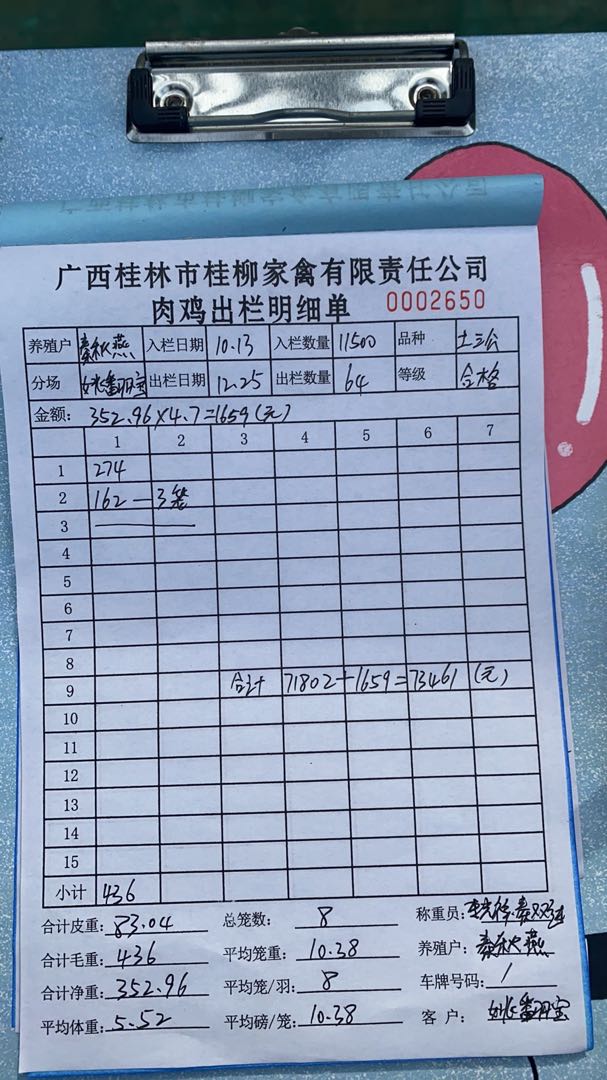 广西桂林市桂柳家禽有限责任公司
肉鸡出栏明细单 0002650
养殖户 秦秋燕 入栏日期 10.13 入栏数量 11500 品种 土三公
分场 出栏日期 12.25 出栏数量 64 等级 合格
金额: 352.96×4.7=1659(元)
1 2 3 4 5 6 7
1 274
2 162—3笼
3
4
5
6
7
8
9 合计 71802+1659=73461 (元)
10
11
12
13
14
15
小计 436
合计皮重: 83.04 总笼数: 8 称重员:
合计毛重: 436 平均笼重: 10.38 养殖户: 秦秋燕
合计净重: 352.96 平均笼/羽: 8 车牌号码: 1
平均体重: 5.52 平均磅/笼: 10.38 客户: